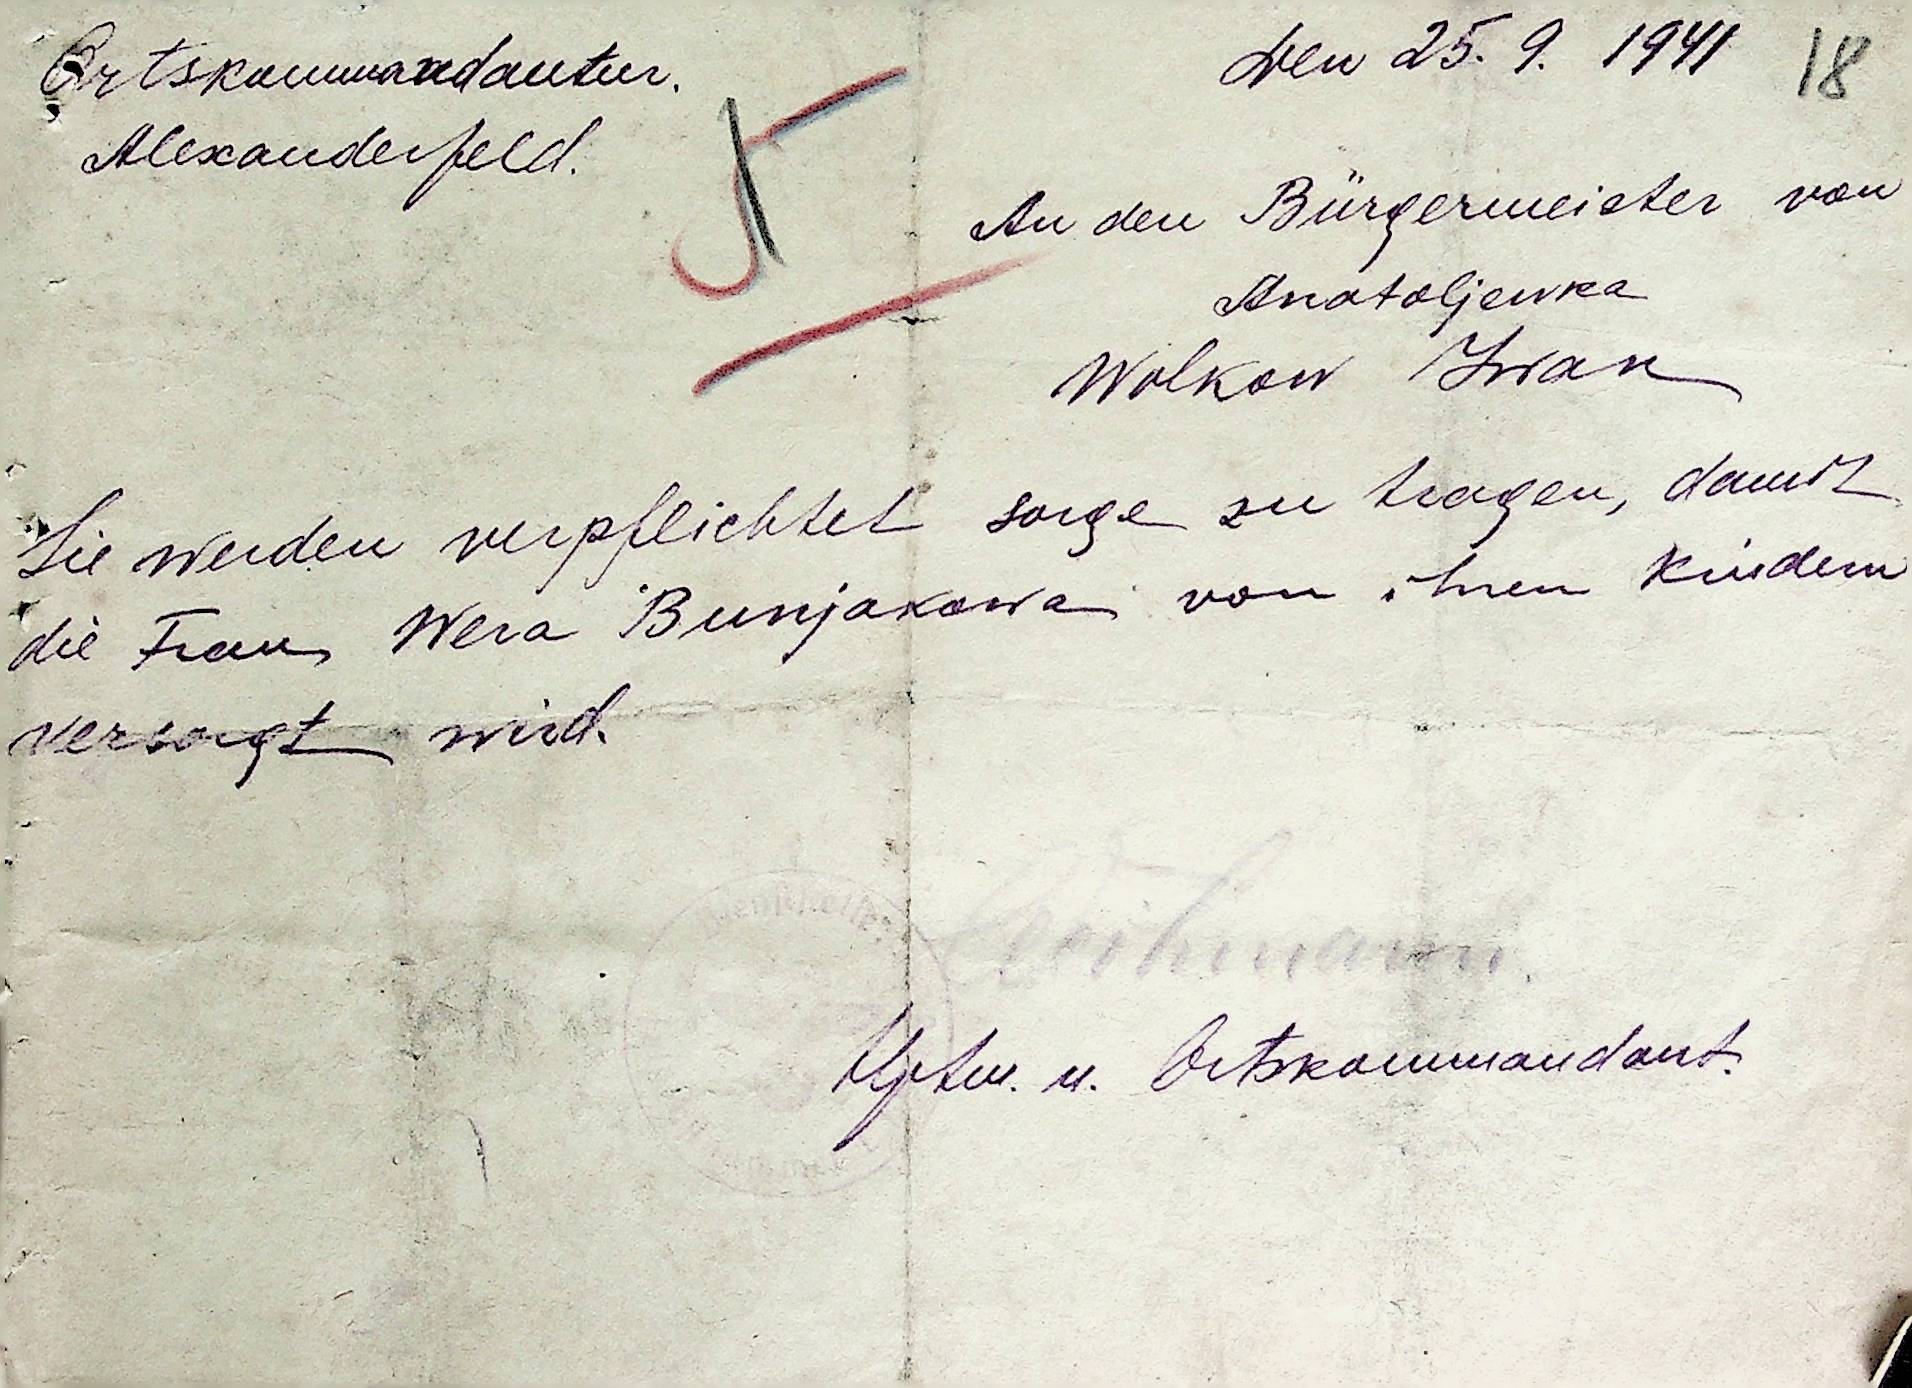 Ortskommandantur.
Alexanderfeld.
Den 25. 9. 1941
18
5
An den Bürgermeister von
Anatoljewka
Wolkow Iwan
Sie werden verpflichtet sorge zu tragen, damit
die Frau Wera Bunjakowa von ihren Kindern
versorgt wird.
Hptm. u. Ortskommandant.